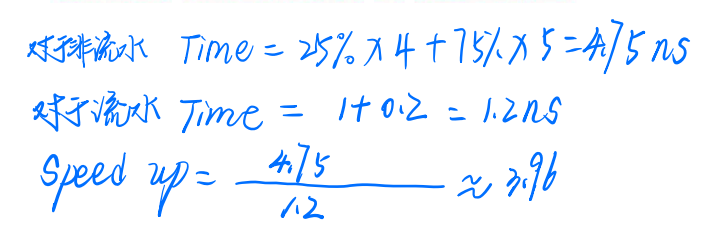 对于非流水 Time = 25% × 4 + 75% × 5 = 4.75 ns
对于流水 Time = 1+0.2 = 1.2ns
Speed up = 4.75 / 1.2 ≈ 3.96